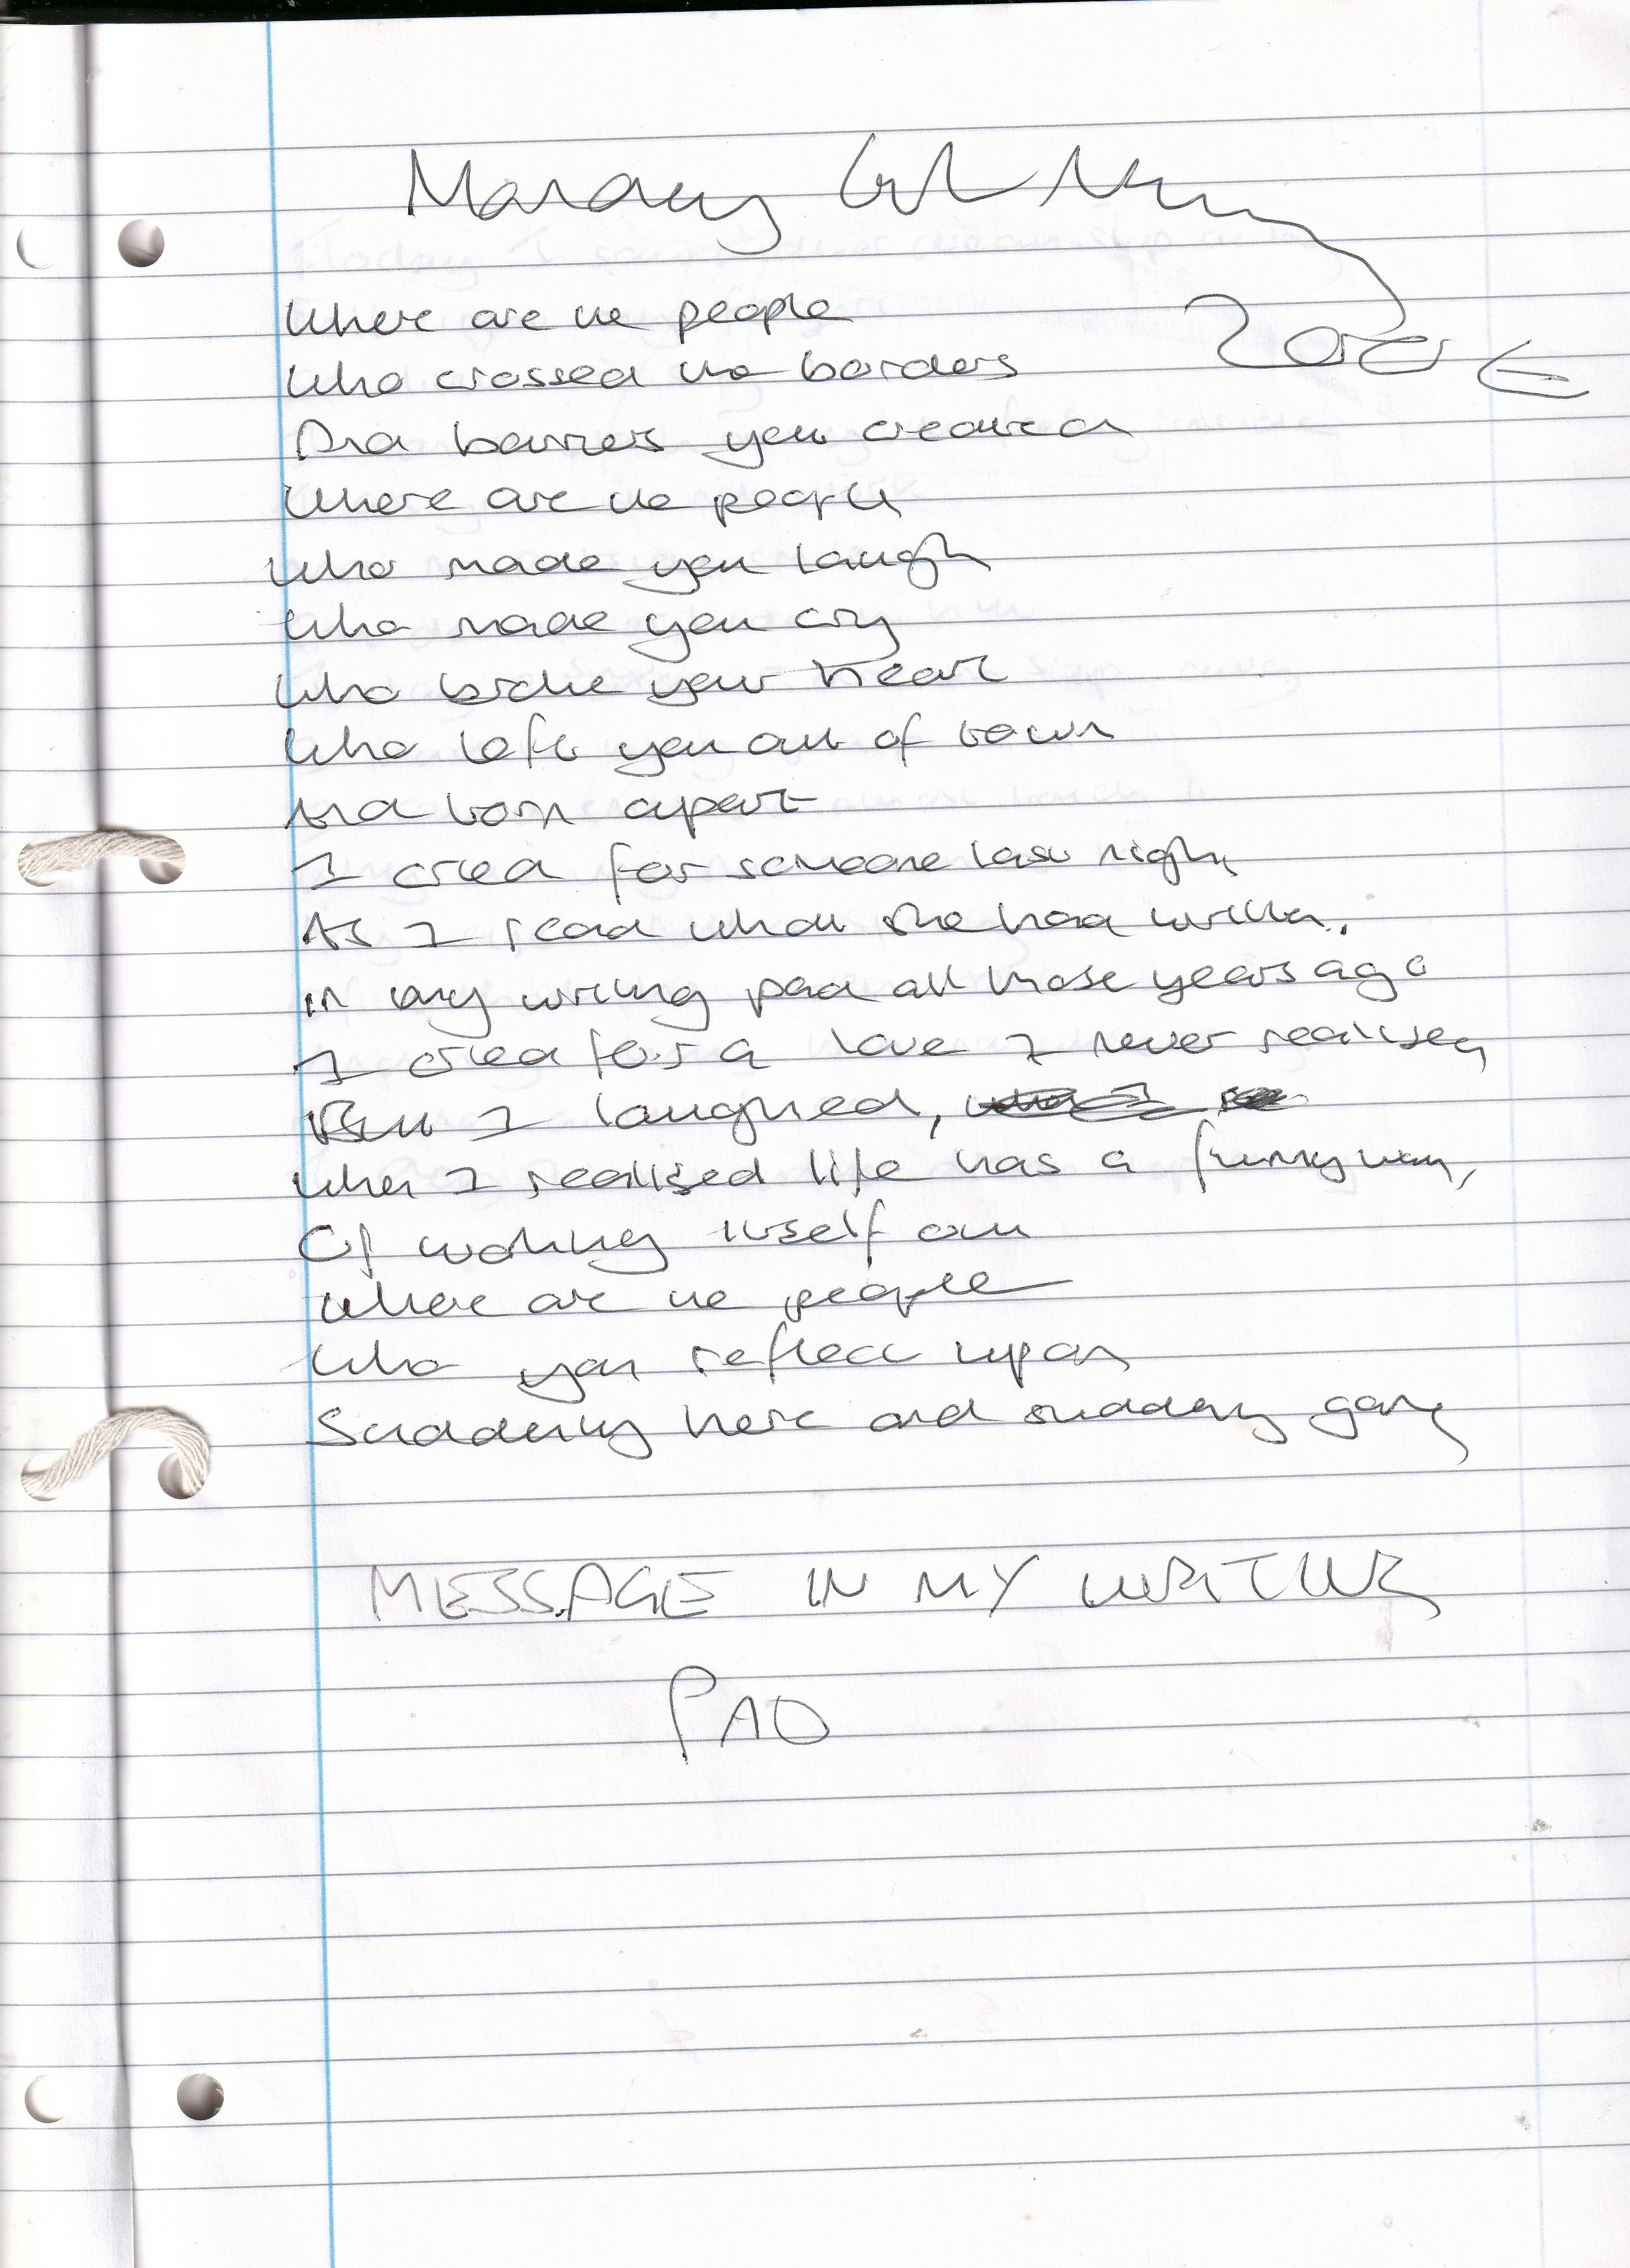 Monday 6th
Where are the people
Who crossed the borders
And barriers you created
Where are the people
Who made you laugh
Who made you cry
Who broke your heart
Who left you out of town
And torn apart
I cried for someone last night
As I read what she had written.
in my writing pad all those years ago
I cried for a love I never realised
But I laughed,
When I realised life has a funny way,
Of working itself out
Where are the people
Who you reflect upon
Suddenly here and suddenly gone
MESSAGE IN MY WRITING
PAD